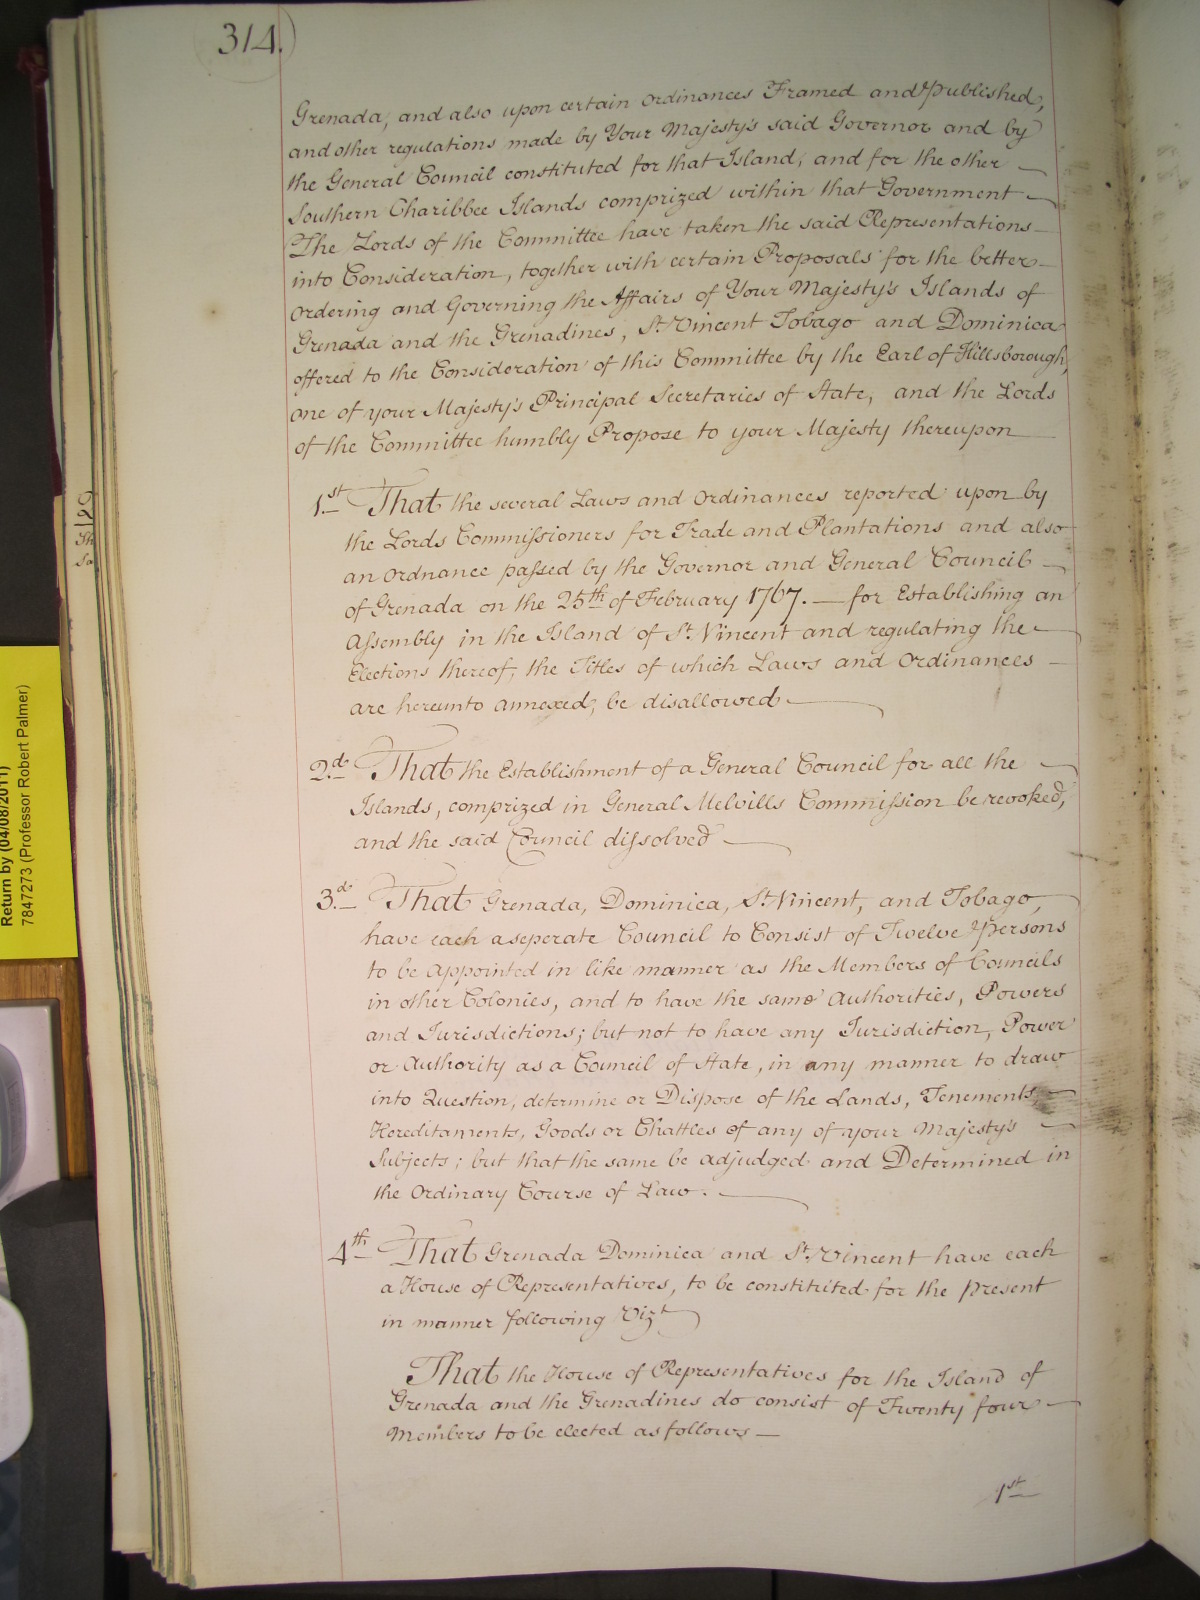 314.
Grenada, and also upon certain Ordinances Framed and Published,
and other regulations made by Your Majesty's said Governor and by
the General Council constituted for that Island, and for the other
Southern Charibbee Islands comprized within that Government
The Lords of the Committee have taken the said Representations
into Consideration, together with certain Proposals for the better
Ordering and Governing the Affairs of Your Majesty's Islands of
Grenada and the Grenadines, St. Vincent Tobago and Dominica
offered to the Consideration of this Committee by the Earl of Hillsborough,
one of your Majesty's Principal Secretaries of State, and the Lords
of the Committee humbly Propose to your Majesty thereupon
1.st That the several Laws and Ordinances reported upon by
the Lords Commissioners for Trade and Plantations and also
an Ordnance passed by the Governor and General Council
of Grenada on the 25th of February 1767. — for Establishing an
Assembly in the Island of St. Vincent and regulating the
Elections thereof, the Titles of which Laws and Ordinances
are hereunto annexed, be disallowed
2.d That the Establishment of a General Council for all the
Islands, comprized in General Melvills Commission be revoked,
and the said Council dissolved
3.d That Grenada, Dominica, St. Vincent, and Tobago,
have each a seperate Council to Consist of Twelve Persons
to be appointed in like manner as the Members of Councils
in other Colonies, and to have the same Authorities, Powers
and Jurisdictions; but not to have any Jurisdiction, Power
or Authority as a Council of State, in any manner to draw
into Question, determine or Dispose of the Lands, Tenements,
Hereditaments, Goods or Chattles of any of your Majesty's
Subjects; but that the same be adjudged and Determined in
the Ordinary Course of Law.
4th That Grenada Dominica and St. Vincent have each
a House of Representatives, to be constituted for the present
in manner following Vizt
That the House of Representatives for the Island of
Grenada and the Grenadines do consist of Twenty four
Members to be elected as follows —
1st
129
Return by (04/08/2011)
7847273 (Professor Robert Palmer)